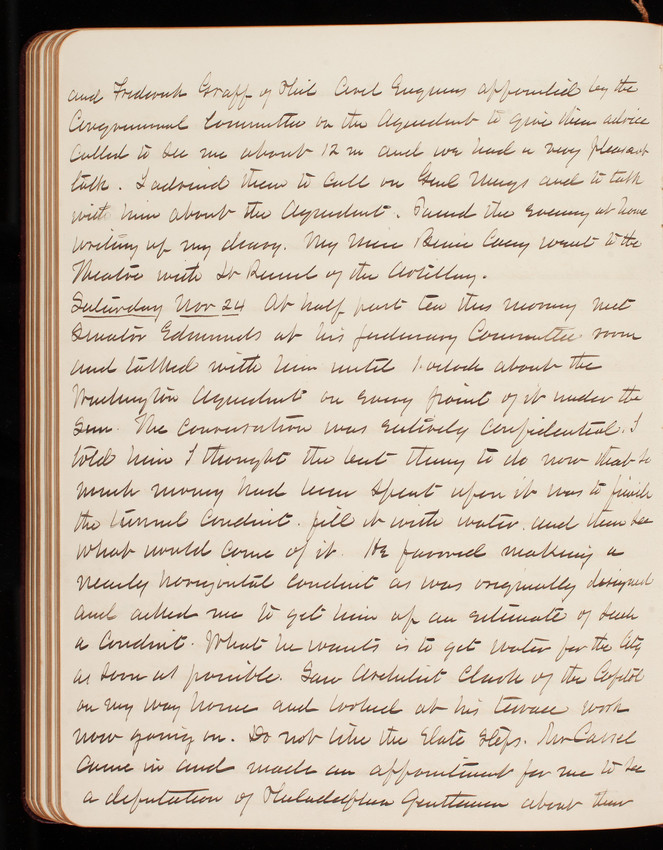 and Frederick Graff of Phil Civil Engineers appointed by the
Congressional Committee on the Aqueduct to give them advice
called to see me about 12 m and we had a very pleasant
talk. I advised them to call on Genl Meigs and to talk
with him about the Aqueduct. Passed the evening at home
writing up my diary. My niece Bessie Casey went to the
Theatre with Lt of the Artillery.
Saturday Nov 24 At half past ten this morning met
Senator Edmunds at his Judiciary Committee room
and talked with him until 1 o'clock about the
Washington Aqueduct on every point of it under the
Sun. The conversation was entirely confidential. I
told him I thought the best thing to do now that so
much money had been spent upon it was to finish
the tunnel conduit. fill it with water. and then see
what would come of it. He favored making a
nearly horizontal conduit as was originally designed
and asked me to get him up an estimate of such
a conduit. What he wants is to get water for the City
as soon as possible. Saw Architect Clark of the Capitol
on my way home and looked at his terrace work
now going on. Do not like the Slate Steps. Mr Cassel
came in and made an appointment for me to see
a deputation of Philadelphia Gentlemen about their